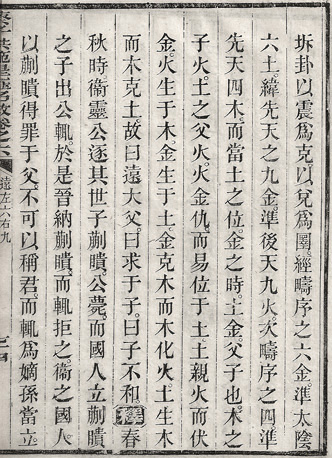 坼卦以震爲克以兌爲圍經疇序之六金準太陰
六土緯先天之九金準後天九火次疇序之四準
先天四木而當土之位金之時土金父子也木之
子火土之父火火金仇而易位于土土親火而伏
金火生于木金生于土金克木而木化火土生木
而木克土故曰遠大父曰求于子曰子不和釋春
秋時衞靈公逐其世子蒯聵公薨而國人立蒯聵
之子出公輒於是晉納蒯聵而輒拒之衞之國人
以蒯聵得罪于父不可以稱君而輒爲嫡孫當立
遠左六右九